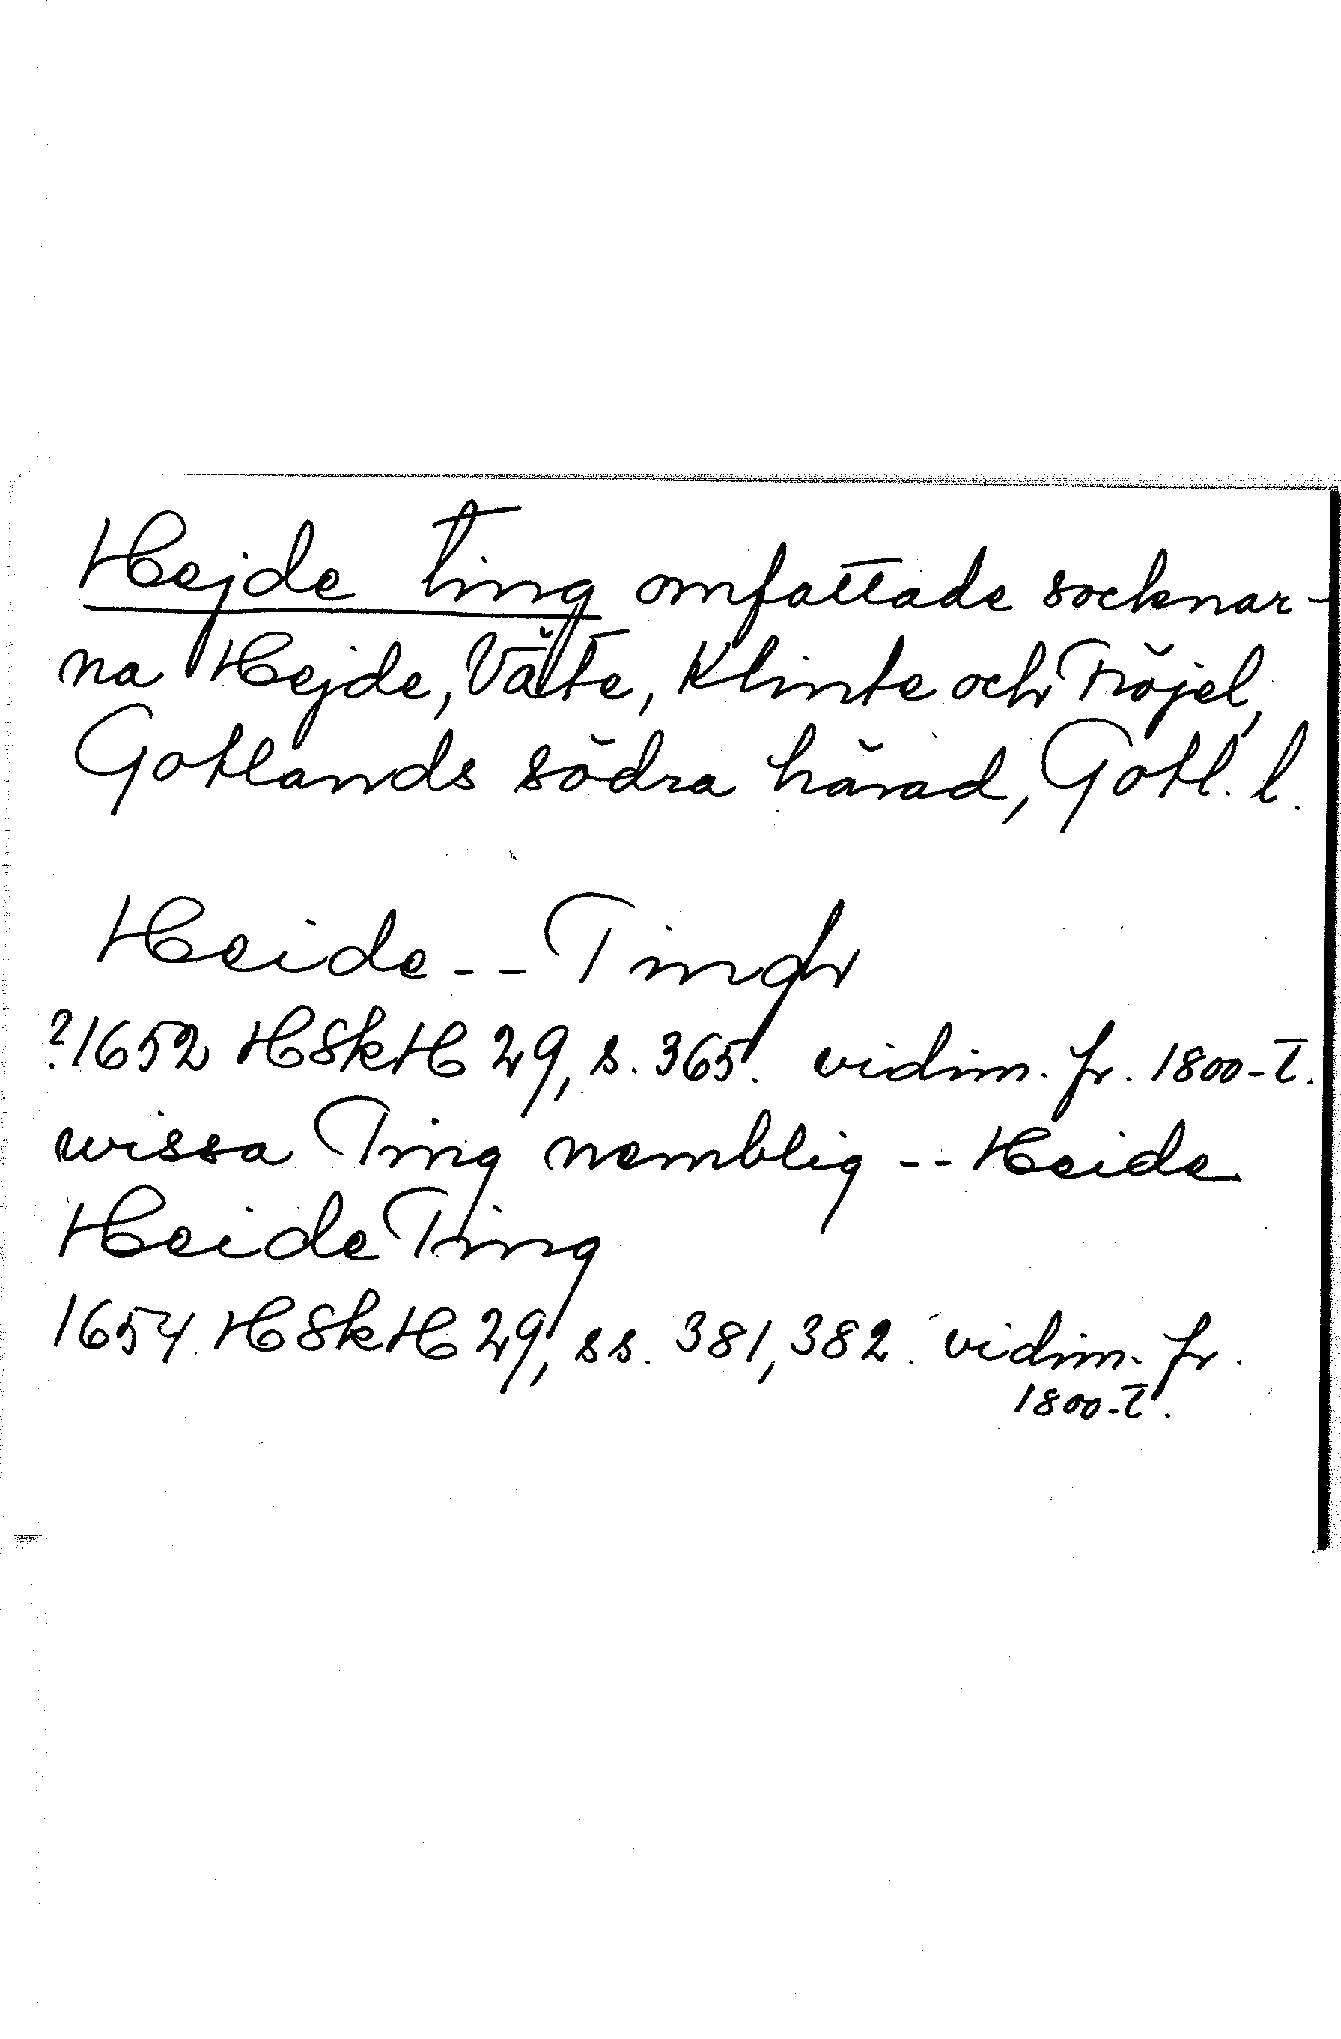 Hejde ting omfattade socknar-
na Hejde, Väte, Klinte och Fröjel,
Gotlands södra härad, Gotl. l.
Heide -- Tingh
?1652 HSkH 29, s. 365. vidim. fr. 1800-t.
wissa Ting nemblig -- Heide
Heide Ting
1654 HSkH 29, ss. 381, 382. vidim. fr.
1800-t.